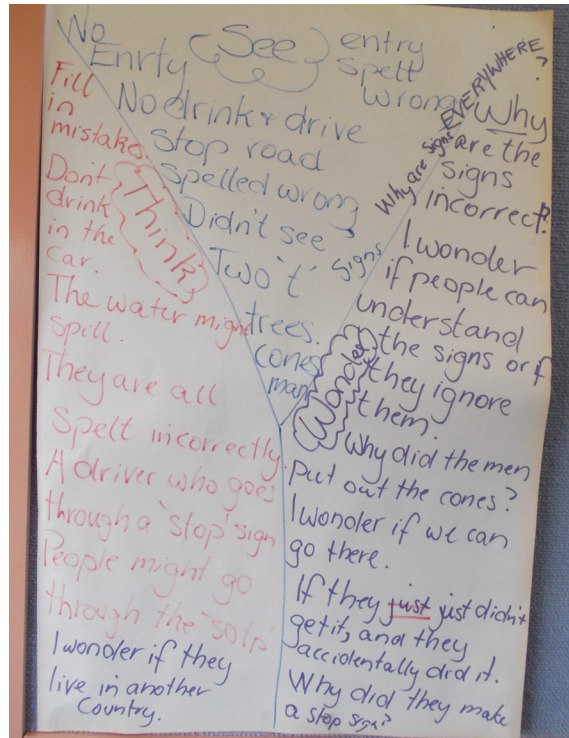 See
No
Enrty
entry
spelt
wrong
No drink & drive
stop road
spelled wrong
Didn't see
Two 't' signs
trees.
cones
man
Think
Fill
in
mistakes.
Don't
drink
in the
car.
The water might
spill.
They are all
spelt incorrectly.
A driver who goes
through a 'stop' sign
People might go
through the 'sotp'
I wonder if they
live in another
Country.
Wonder
Why are signs EVERYWHERE?
Why
are the
signs
incorrect?
I wonder
if people can
understand
the signs or if
they ignore
them.
Why did the men
put out the cones?
I wonder if we can
go there.
If they just just didn't
get it, and they
accidentally did it.
Why did they make
a stop sign?